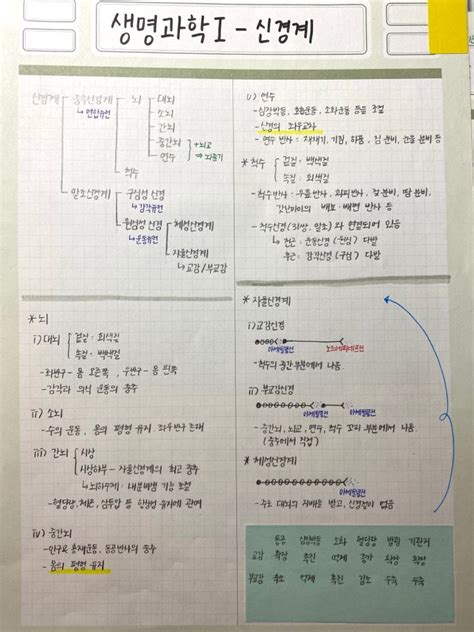 생명과학 I - 신경계
신경계 중추신경계 뇌 대뇌
↳ 연합뉴런
소뇌
간뇌
중간뇌
연수
+뇌교
⇒ 뇌줄기
척수
말초신경계 구심성 신경
↳ 감각뉴런
원심성 신경 체성신경계
↳ 운동뉴런
자율신경계
↳ 교감/부교감
* 뇌
i) 대뇌 겉질 · 회색질
속질 · 백색질
- 좌반구 - 몸 오른쪽, 우반구 - 몸 왼쪽
- 감각과 의식 운동의 중추
ii) 소뇌
- 수의 운동, 몸의 평형 유지. 좌우반구 존재
iii) 간뇌 시상
시상하부 - 자율신경계의 최고 중추
↳ 뇌하수체 : 내분비샘 기능 조절
- 혈당량, 체온, 삼투압 등 항상성 유지에 관여
iv) 중간뇌
- 안구운동, 동공반사의 중추
- 몸의 평형 유지
v) 연수
- 심장박동, 호흡운동, 소화운동 등을 조절
- 신경의 좌우교차
- 연수 반사 : 재채기, 기침, 하품, 침 분비, 눈물 분비 등
* 척수 겉질 · 백색질
속질 · 회색질
- 척수반사 : 무릎반사, 회피반사, 젖 분비, 땀 분비,
갓난아이의 배뇨 · 배변 반사 등
- 척수신경 (31쌍, 말초)와 연결되어 있음
↳ 전근 : 운동신경 (원심) 다발
후근 : 감각신경 (구심) 다발
* 자율신경계
i) 교감신경
아세틸콜린 노르에피네프린
- 척수의 중간 부분에서 나옴
ii) 부교감신경
아세틸콜린 아세틸콜린
- 중간뇌, 뇌교, 연수, 척수 꼬리 부분에서 나옴.
(중추에서 직접)
* 체성신경계
아세틸콜린
- 주로 대뇌의 지배를 받고, 신경절이 없음
동공 심장박동 소화 혈당량 방광 기관지
교감 확장 촉진 억제 증가 확장 확장
부교감 축소 억제 촉진 감소 수축 수축